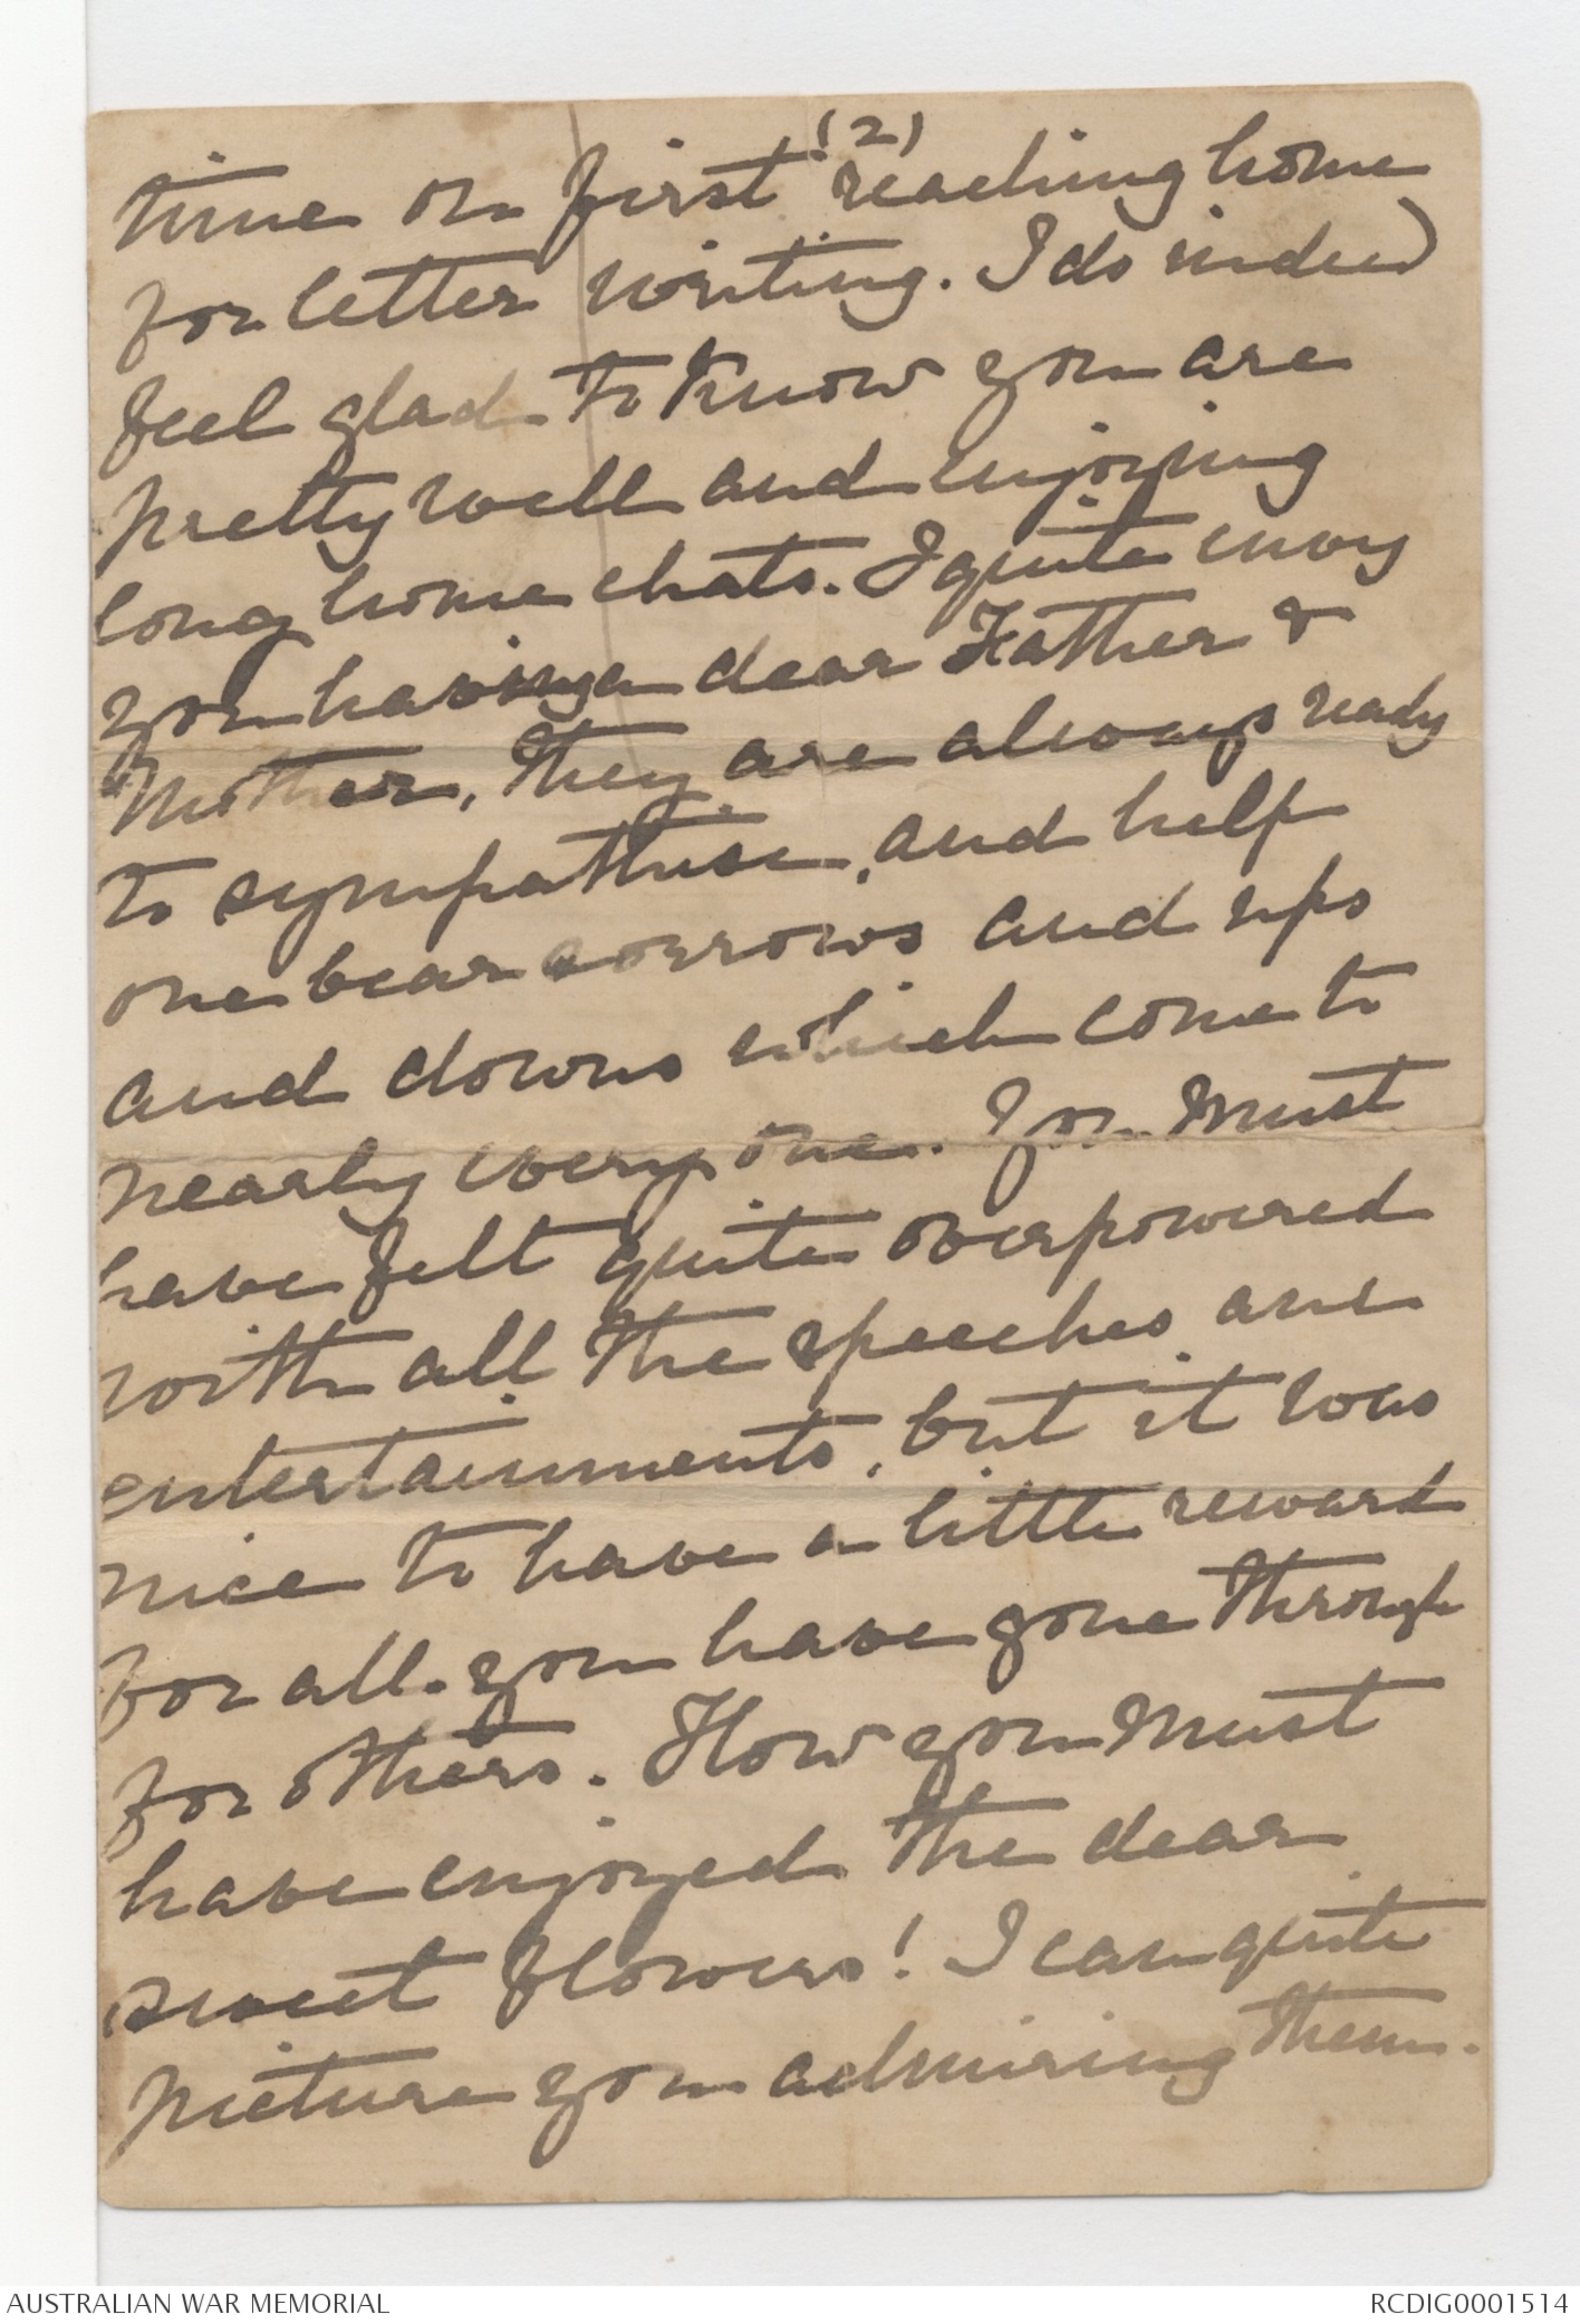 (2)
time on first reaching home
for letter writing. I do indeed
feel glad to know you are
pretty well and enjoying
long home chats. I quite envy
you having a dear Father &
Mother, they are always ready
to sympathise, and help
one bear sorrows and ups
and downs which come to
nearly every one. You must
have felt quite overpowered
with all the speeches and
entertainments, but it was
nice to have a little reward
for all you have gone through
for others. How you must
have enjoyed the dear
sweet flowers! I can quite
picture you admiring them.
AUSTRALIAN WAR MEMORIAL
RCDIG0001514